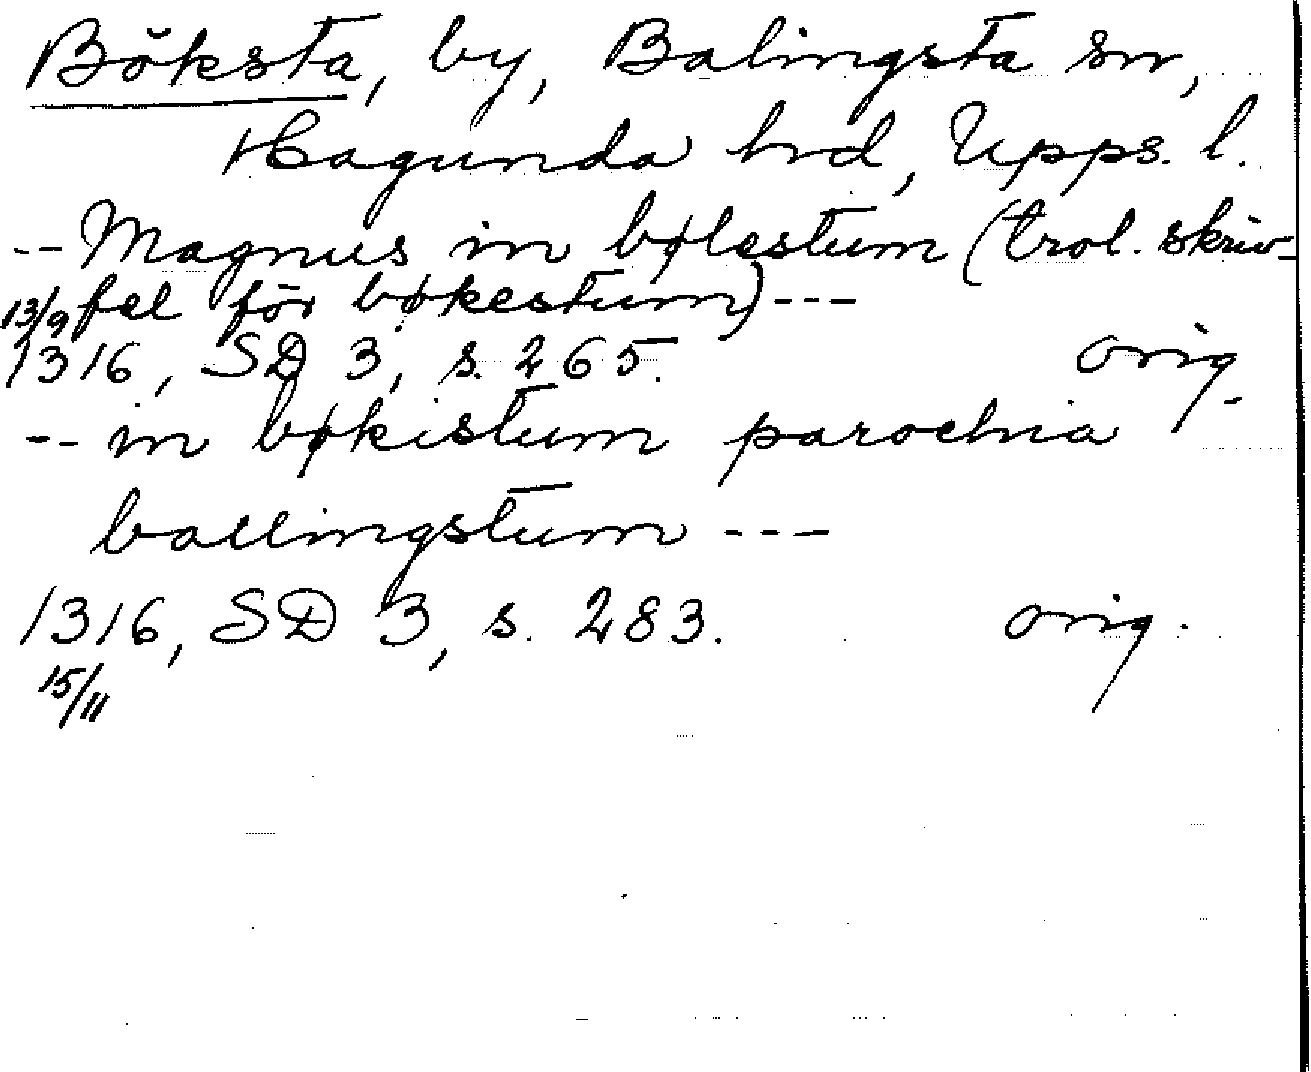 Böksta, by, Balingsta sn,
Hagunda hrd, Upps. l.
-- Magnus in bølestum (trol. skriv-
13/9 fel för bøkestum) ---
1316, SD 3, s. 265. orig.
-- in bøkistum parochia
ballingstum ---
1316, SD 3, s. 283. orig.
15/11